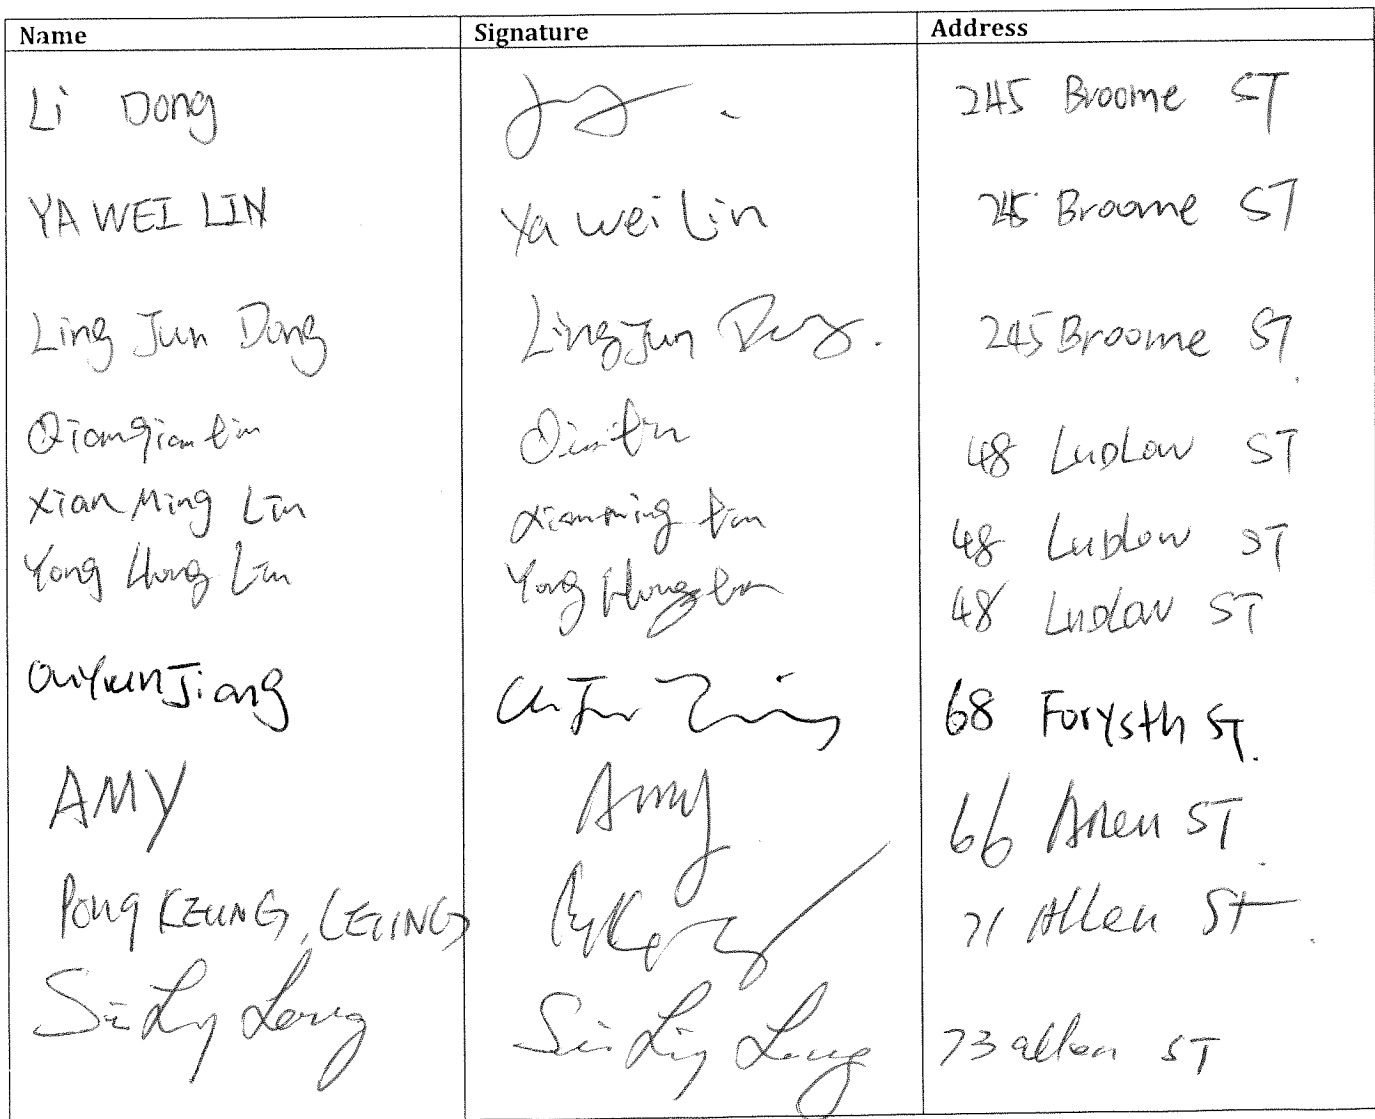 Name Signature Address
Li Dong 245 Broome ST
YA WEI LIN Ya wei Lin 245 Broome ST
Ling Jun Dong Ling Jun Dong. 245 Broome ST.
Qianqian Lin 48 LuDLow ST
Xian Ming Lin Xianming Lin 48 LuDLow ST
Yong Hong Lin Yong Hong Lin 48 LuDLow ST
Jiang 68 Forysth ST.
AMY Amy 66 Allen ST.
Pong KEUNG, LEUNG 71 Allen St.
Leong 73 allen ST